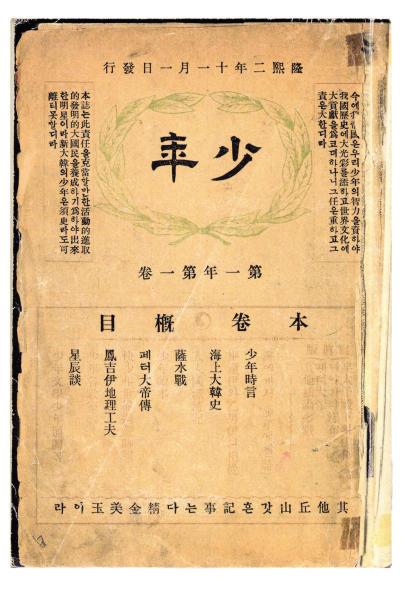 隆熙二年十一月一日發行
今에我帝國은우리少年의智力을資하야
我國歷史에大光彩를添하고世界文化에
大貢獻을爲코뎌하나니그任은重하고그
責은大한디라
少年
本誌는此責任을克當할만한活動的進取
的發明的大國民을養成하기爲하야出來
한明星이라新大韓의少年은須臾라도可
離티못할디라
第一年第一卷
本卷槪目
少年時言
海上大韓史
薩水戰
페터大帝傳
鳳吉伊地理工夫
星辰談
其他丘山갓흔記事는다精金美玉이라